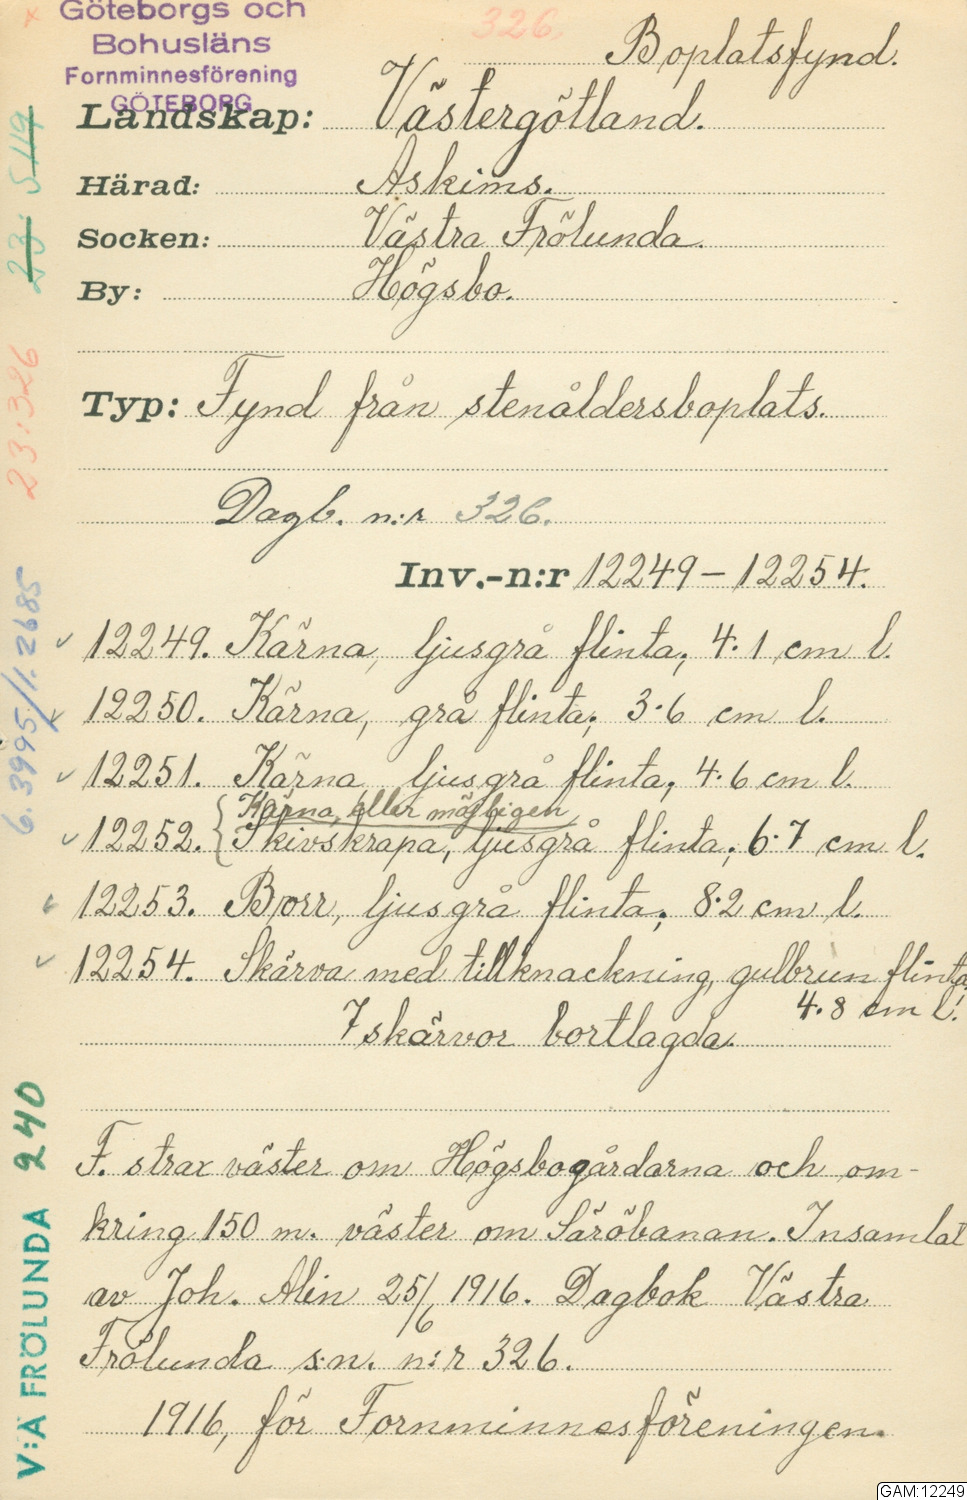 Göteborgs och
Bohusläns
Fornminnesförening
GÖTEBORG
326.
Boplatsfynd.
Landskap: Västergötland.
Härad: Askims.
Socken: Västra Frölunda.
By: Högsbo.
Typ: Fynd från stenåldersboplats.
Dagb. n:r 326.
Inv.-n:r 12249 – 12254.
12249. Kärna, ljusgrå flinta; 4.1 cm l.
12250. Kärna, grå flinta; 3.6 cm l.
12251. Kärna ljusgrå flinta; 4.6 cm l.
Kärna, eller möjligen
12252. Skivskrapa, ljusgrå flinta; 6.7 cm l.
12253. Borr, ljusgrå flinta; 8.2 cm l.
12254. Skärva med tillknackning, gulbrun flinta;
4.8 cm l.
7 skärvor bortlagda.
F. strax väster om Högsbogårdarna och om-
kring 150 m. väster om Säröbanan. Insamlat
av Joh. Alin 25/6 1916. Dagbok Västra
Frölunda s:n. n:r 326.
1916, för Fornminnesföreningen.
23: 5119
23:326
6.3995/1.2685
V:A FRÖLUNDA 240
GAM:12249